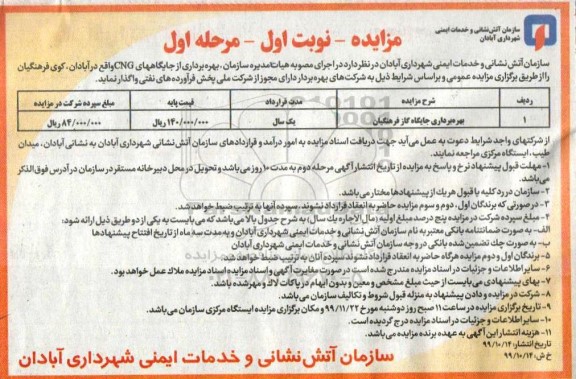 سازمان آتش نشانی و خدمات ایمنی
شهرداری آبادان
مزایده - نوبت اول - مرحله اول
سازمان آتش نشانی و خدمات ایمنی شهرداری آبادان در نظر دارد در اجرای مصوبه هیات مدیره سازمان، بهره برداری از جایگاههای CNG واقع در آبادان، کوی فرهنگیان
را از طریق برگزاری مزایده عمومی و براساس شرایط ذیل به شرکت های بهره بردار دارای مجوز از شرکت ملی پخش فرآورده های نفتی واگذار نماید.
ردیف شرح مزایده مدت قرارداد قیمت پایه مبلغ سپرده شرکت در مزایده
۱ بهره برداری جایگاه گاز فرهنگیان یک سال ۱۴۰/۰۰۰/۰۰۰ ریال ۸۴/۰۰۰/۰۰۰ ریال
از شرکتهای واجد شرایط دعوت به عمل می آید جهت دریافت اسناد مزایده به امور درآمد و قراردادهای سازمان آتش نشانی شهرداری آبادان به نشانی آبادان، میدان
طیب، ایستگاه مرکزی مراجعه نمایند.
۱- مهلت قبول پیشنهاد نرخ و پاسخ به مزایده از تاریخ انتشار آگهی مرحله دوم به مدت ۱۰ روز می باشد و تحویل در محل دبیرخانه مستقر در سازمان در آدرس فوق الذکر
می باشد.
۲- سازمان در رد کلیه یا قبول هر یک از پیشنهادها مختار می باشد.
۳- در صورتی که برندگان اول، دوم و سوم مزایده حاضر به انعقاد قرارداد نشوند. سپرده آنها به ترتیب ضبط خواهد شد.
۴- مبلغ سپرده شرکت در مزایده پنج درصد مبلغ اولیه (مال الاجاره یک سال) به شرح جدول بالا می باشد که می بایست به یکی از دو طریق ذیل ارائه شود:
الف- به صورت ضمانتنامه بانکی معتبر به نام سازمان آتش نشانی و خدمات ایمنی شهرداری آبادان و به مدت سه ماه از تاریخ افتتاح پیشنهادها
ب- به صورت چک تضمین شده بانکی در وجه سازمان آتش نشانی و خدمات ایمنی شهرداری آبادان
۵- برندگان اول و دوم مزایده هرگاه حاضر به انعقاد قرارداد نشوند سپرده آنان به ترتیب ضبط خواهد شد.
۶- سایر اطلاعات و جزئیات در اسناد مزایده مندرج شده است در صورت مغایرت آگهی و اسناد مزایده اسناد مزایده ملاک عمل خواهد بود.
۷- بهای پیشنهادی می بایست از حیث مبلغ مشخص و معین و بدون ابهام در پاکات لاک و مهر شده باشد.
۸- شرکت در مزایده و دادن پیشنهاد به منزله قبول شروط و تکالیف سازمان می باشد.
۹- تاریخ برگزاری مزایده در ساعت ۱۱ صبح روز دوشنبه مورخ ۹۹/۱۱/۲۳ و مکان برگزاری مزایده ایستگاه مرکزی سازمان می باشد.
۱۰- سایر اطلاعات و جزئیات در اسناد مزایده درج گردیده است.
۱۱- هزینه انتشار این آگهی به عهده برنده مزایده می باشد.
تاریخ انتشار: ۹۹/۱۰/۱۴
خ ش: ۹۹/۱۰/۱۴
سازمان آتش نشانی و خدمات ایمنی شهرداری آبادان